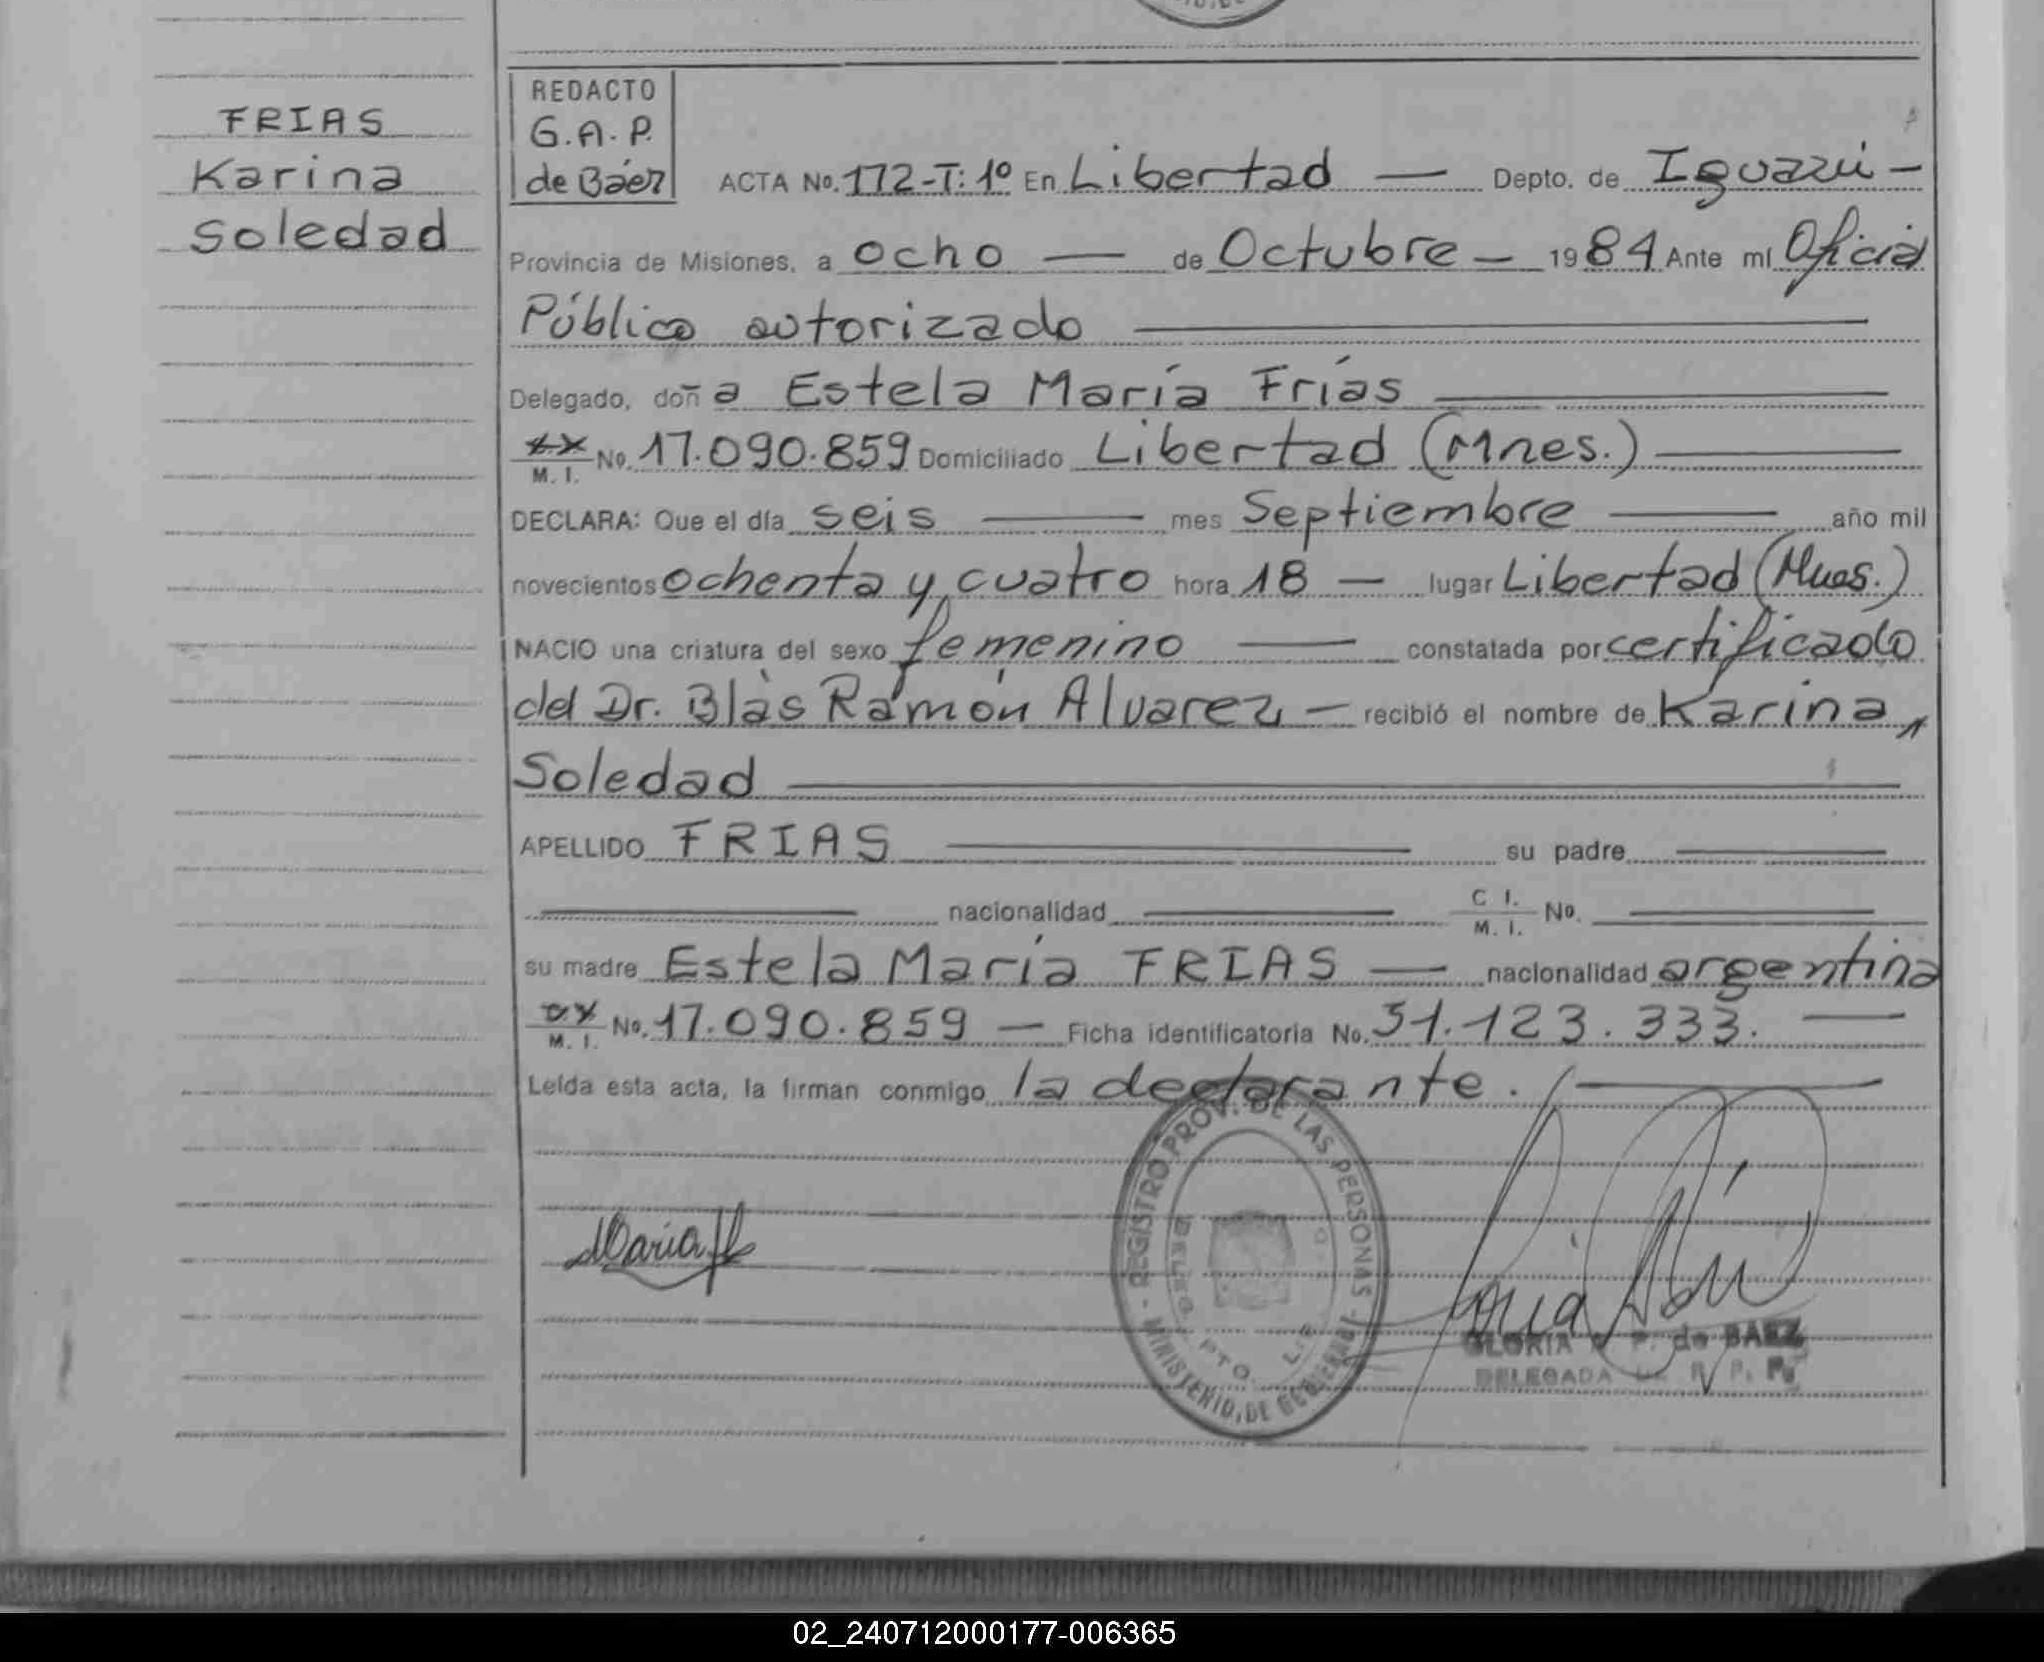 FRIAS
Karina
Soledad
REDACTO
G.A.P.
de Báez
ACTA No. 172-T:1º En Libertad — Depto. de Iguazú —
Provincia de Misiones, a ocho — de Octubre — 1984 Ante mí Oficial
Público autorizado
Delegado, doña Estela María Frías
M. I. No. 17.090.859 Domiciliado Libertad (Mnes.)
DECLARA: Que el día seis — mes Septiembre — año mil
novecientos ochenta y cuatro hora 18 — lugar Libertad (Mnes.)
NACIO una criatura del sexo femenino — constatada por certificado
del Dr. Blás Ramón Alvarez — recibió el nombre de Karina
Soledad
APELLIDO FRIAS — su padre —
— nacionalidad — C I. M. I. No. —
su madre Estela María FRIAS — nacionalidad argentina
M. I. No. 17.090.859 — Ficha identificatoria No. 31.123.333. —
Leída esta acta, la firman conmigo la declarante.
María
REGISTRO PROV. DE LAS PERSONAS
MINISTERIO, DE GOBIERNO
GLORIA P. de BAEZ
DELEGADA R. P. P.
02_240712000177-006365